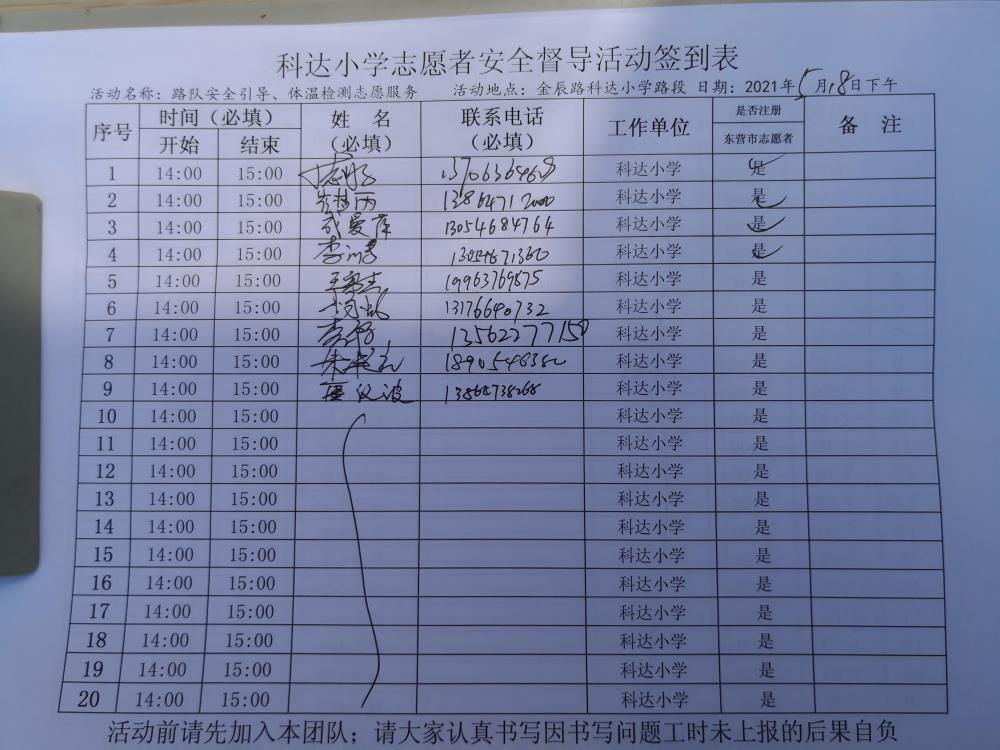 科达小学志愿者安全督导活动签到表
活动名称：路队安全引导、体温检测志愿服务 活动地点：金辰路科达小学路段 日期：2021年5月18日下午
序号 时间（必填） 姓 名（必填） 联系电话（必填） 工作单位 是否注册东营市志愿者 备 注
开始 结束
1 14:00 15:00 科达小学 是
2 14:00 15:00 科达小学 是
3 14:00 15:00 13054684764 科达小学 是
4 14:00 15:00 科达小学 是
5 14:00 15:00 19963769875 科达小学 是
6 14:00 15:00 13176640732 科达小学 是
7 14:00 15:00 13562277150 科达小学 是
8 14:00 15:00 科达小学 是
9 14:00 15:00 科达小学 是
10 14:00 15:00 科达小学 是
11 14:00 15:00 科达小学 是
12 14:00 15:00 科达小学 是
13 14:00 15:00 科达小学 是
14 14:00 15:00 科达小学 是
15 14:00 15:00 科达小学 是
16 14:00 15:00 科达小学 是
17 14:00 15:00 科达小学 是
18 14:00 15:00 科达小学 是
19 14:00 15:00 科达小学 是
20 14:00 15:00 科达小学 是
活动前请先加入本团队；请大家认真书写因书写问题工时未上报的后果自负